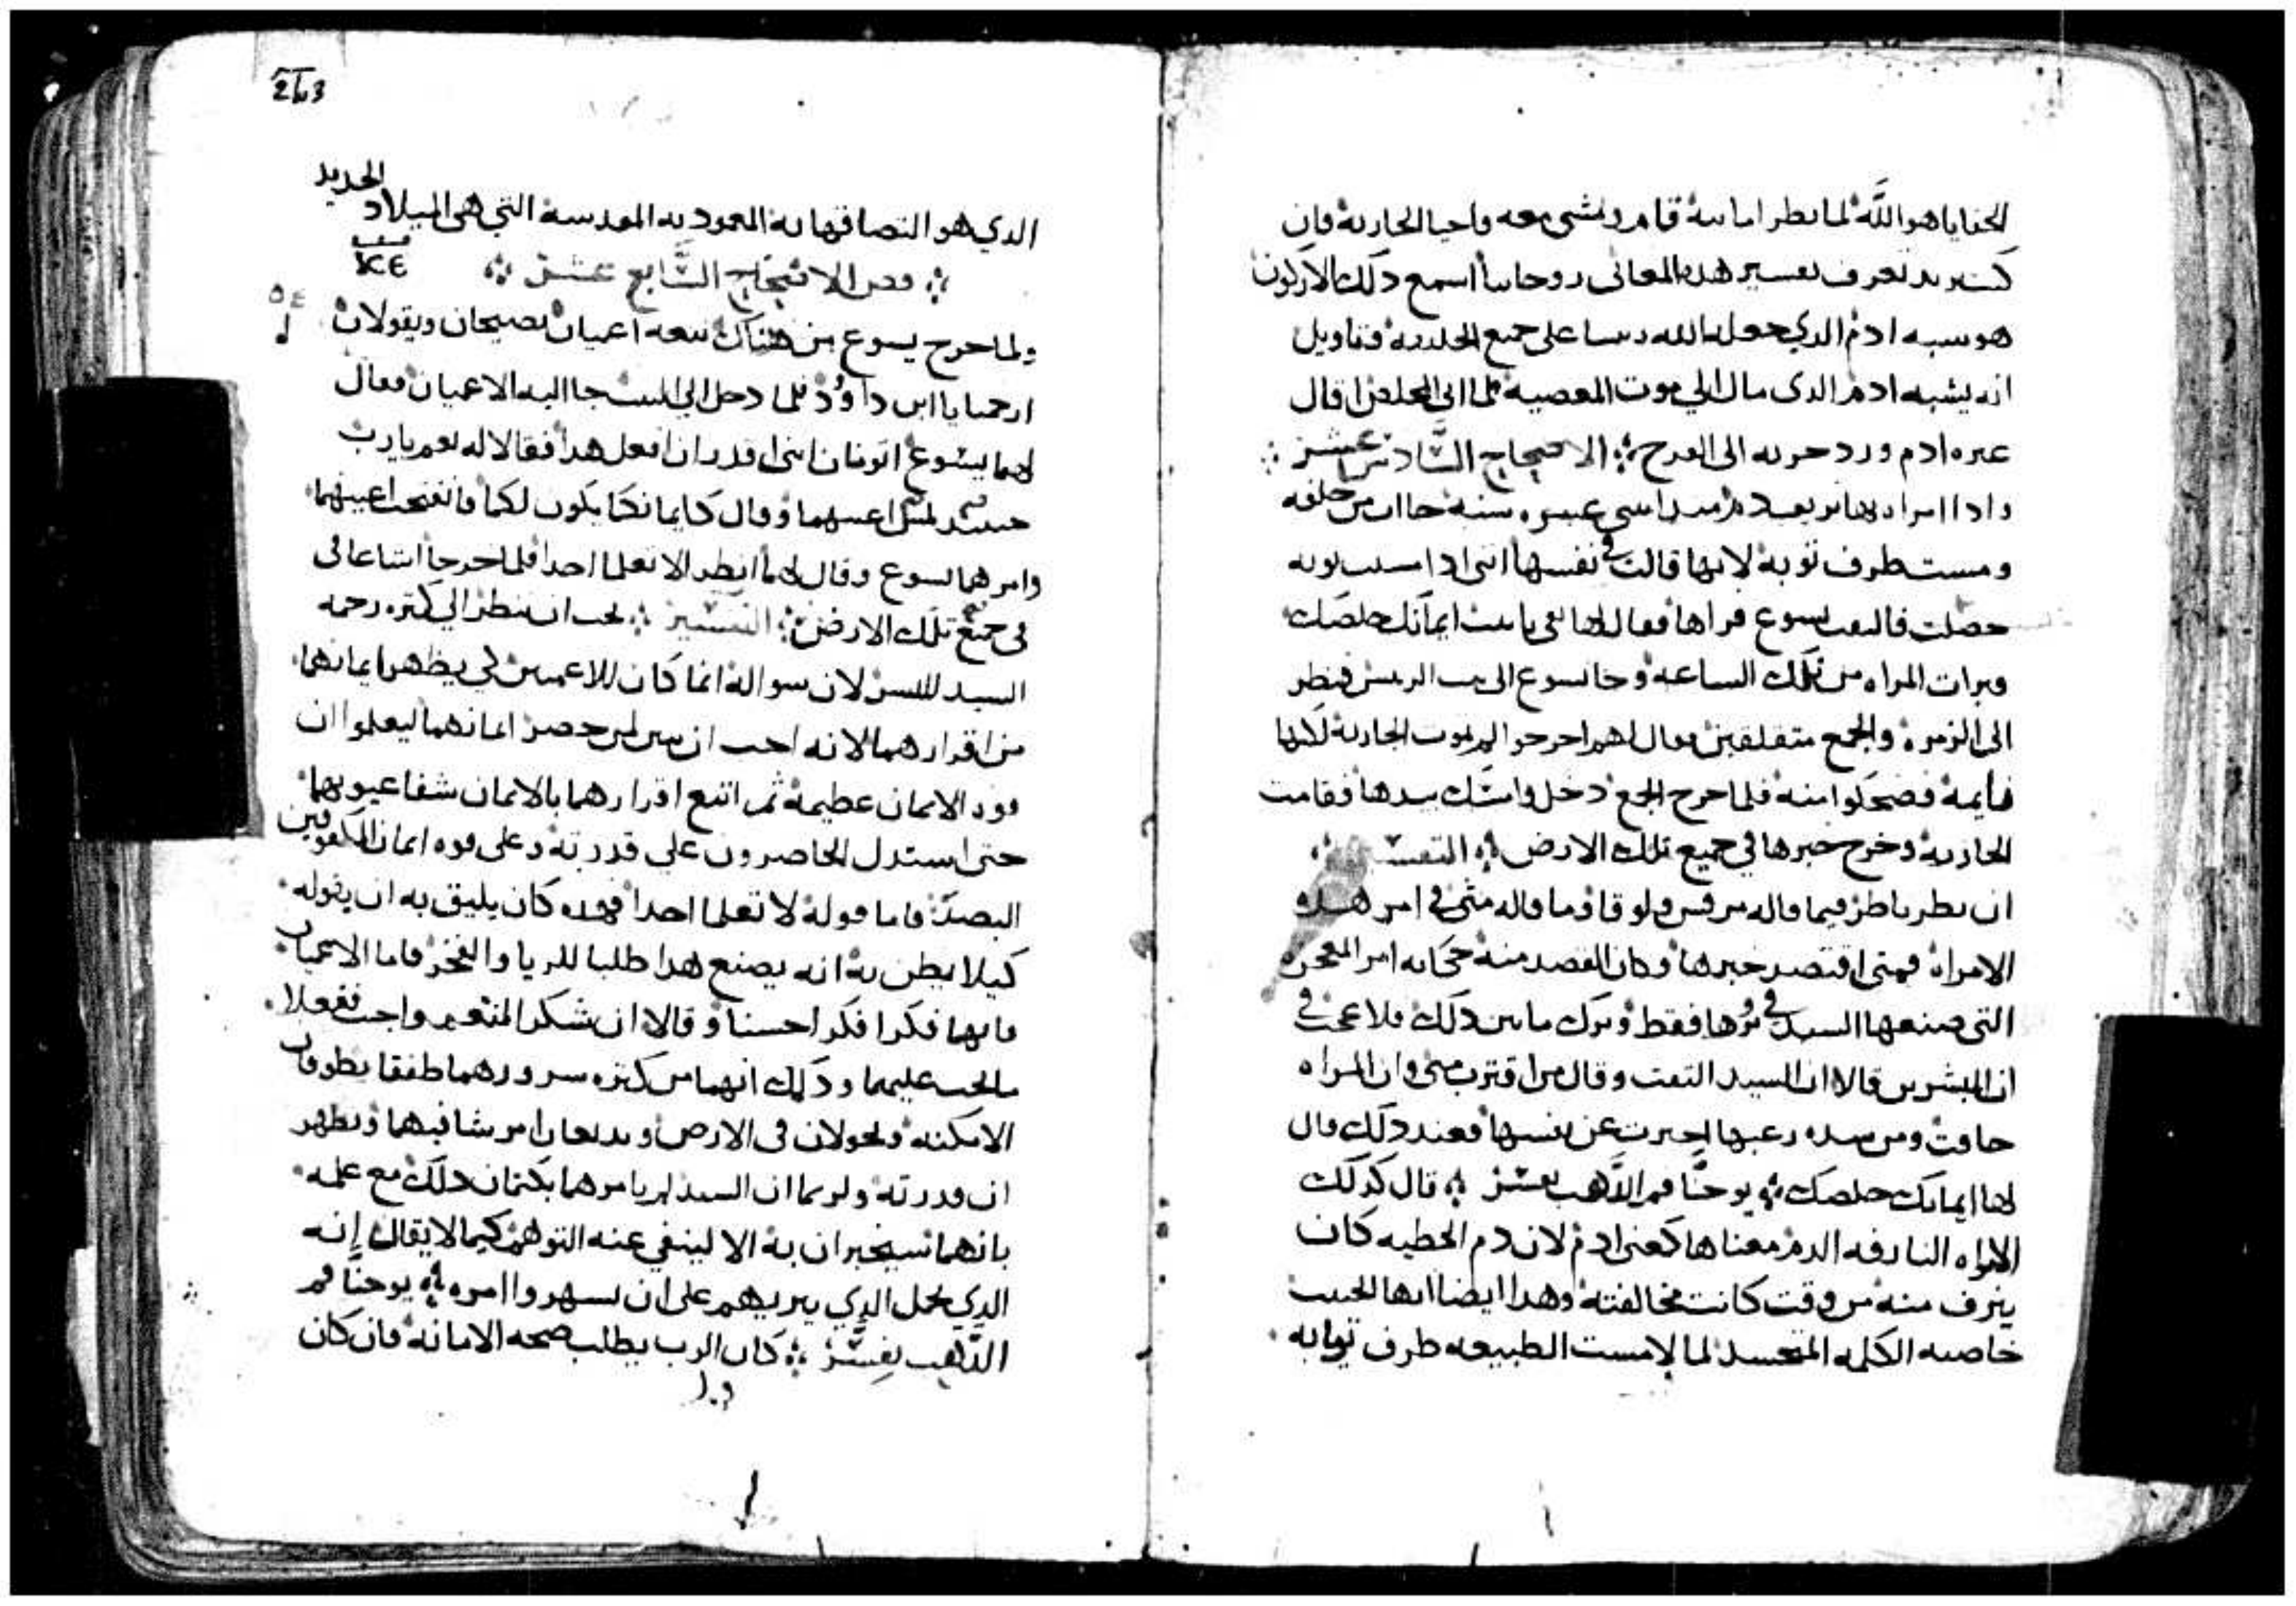 الخفايا هو الله لما نظر امانته قام ومشى معه واحيا الجاريه فان
كنت تريد تعرف تفسير هده المعاني روحانيا اسمع دلك الاركون
هو شبه ادم الدي جعله الله رييسا على جميع الخليقه وتاويل
انه يشبه ادم الدى مال الي موت المعصيه فلما اتى المخلص اقال
عتره ادم ورد حزنه الى الفرح الاصحاح السادس عشر
وادا امراه بها نزيف دم مند اثنى عشره سنة جاات من خلفه
ومست طرف توبة لانها قالت في نفسها اننى ادا مسست توبه
خلصت فالتفت يسوع فراها فقال لها ثقي يا بنت ايمانك خلصك
وبرات المراه من تلك الساعه وجا يسوع الى بيت الرييس فنظر
الى الزمرة والجمع متقلقين فقال لهم اخرجوا لم تموت الجارية لكنها
نايمة فضحكوا منه فلما خرج الجمع دخل وامسك بيدها فقامت
الجارية وخرج خبرها في جميع تلك الارض التفسير
ان نظر ناظر فيما قاله مرقس ولوقا وما قاله متى في امر هده
الامراة فمتى اقتصر خبرها وكان القصد منه حكايه امر المعجزه
التى صنعها السيد في بروها فقط وترك ما بين دلك فلا عجب في
ان المبشرين قالا ان السيد التفت وقال من اقترب منى وان المراه
خافت ومن شده رعبها اخبرت عن نفسها فعند دلك قال
لها ايمانك خلصك يوحنا فم الدهب يفسر قال كدلك
الامراه النازفه الدم معناها كمعنى ادم لان دم الخطيه كان
ينزف منه من وقت كانت مخالفته وهدا ايضا ايها الحبيب
خاصيه الكلمه المتجسد لما لامست الطبيعه طرف توبه
263
الدي هو التصاقها به المعمودية المقدسة التي هى الميلاد الجديد
فص الاصحاح السابع عشر
ΚΕ
٥٤
ولما خرج يسوع من هناك تبعه اعميان يصيحان ويقولان
ارحمنا يا ابن داوود فلما دخل الي البيت جا اليه الاعميان فقال
لهما يسوع اتومنان انني اقدر ان افعل هدا فقالا له نعم يا رب
حينيد لمس اعينهما وقال كايمانكما يكون لكما فانفتحت اعينهما
وامرهما يسوع وقال لهما انظرا لا تعلما احدا فلما خرجا اشاعا في
في جميع تلك الارض التفسير يجب ان ننظر الي كتره رحمه
السيد للبشر لان سواله انما كان للاعميين لكي يظهر ايمانهما
من اقرارهما لانه احب ان يبين لمن حضر ايمانهما ليعلموا ان
قوه الايمان عظيمة ثم اتبع اقرارهما بالايمان شفا عيونهما
حتى استدل الحاضرون على قدرته وعلى قوه ايمان المكفوفين
البصر فاما قوله لا تعلما احدا فهده كان يليق به ان يقوله
كيلا يظن به انه يصنع هدا طلبا للريا والفخر فاما الاعميان
فانهما فكرا فكرا حسنا وقالا ان شكر المنعم واجب ففعلا
ما يجب عليهما ودلك انهما من كتره سرورهما طفقا يطوفان
الامكنه ويجولان في الارض ويديعان امر شافيهما ويظهر
ان قدرته ولربما ان السيد لم يامرهما بكتمان دلك مع علمه
بانهما سيخبران به الا لينفي عنه التوهم كيما لا يقال انه
الدي يحمل الدي يبريهم على ان يشهروا امره يوحنا فم
الدهب يفسر كان الرب يطلب صحه الامانه فان كان